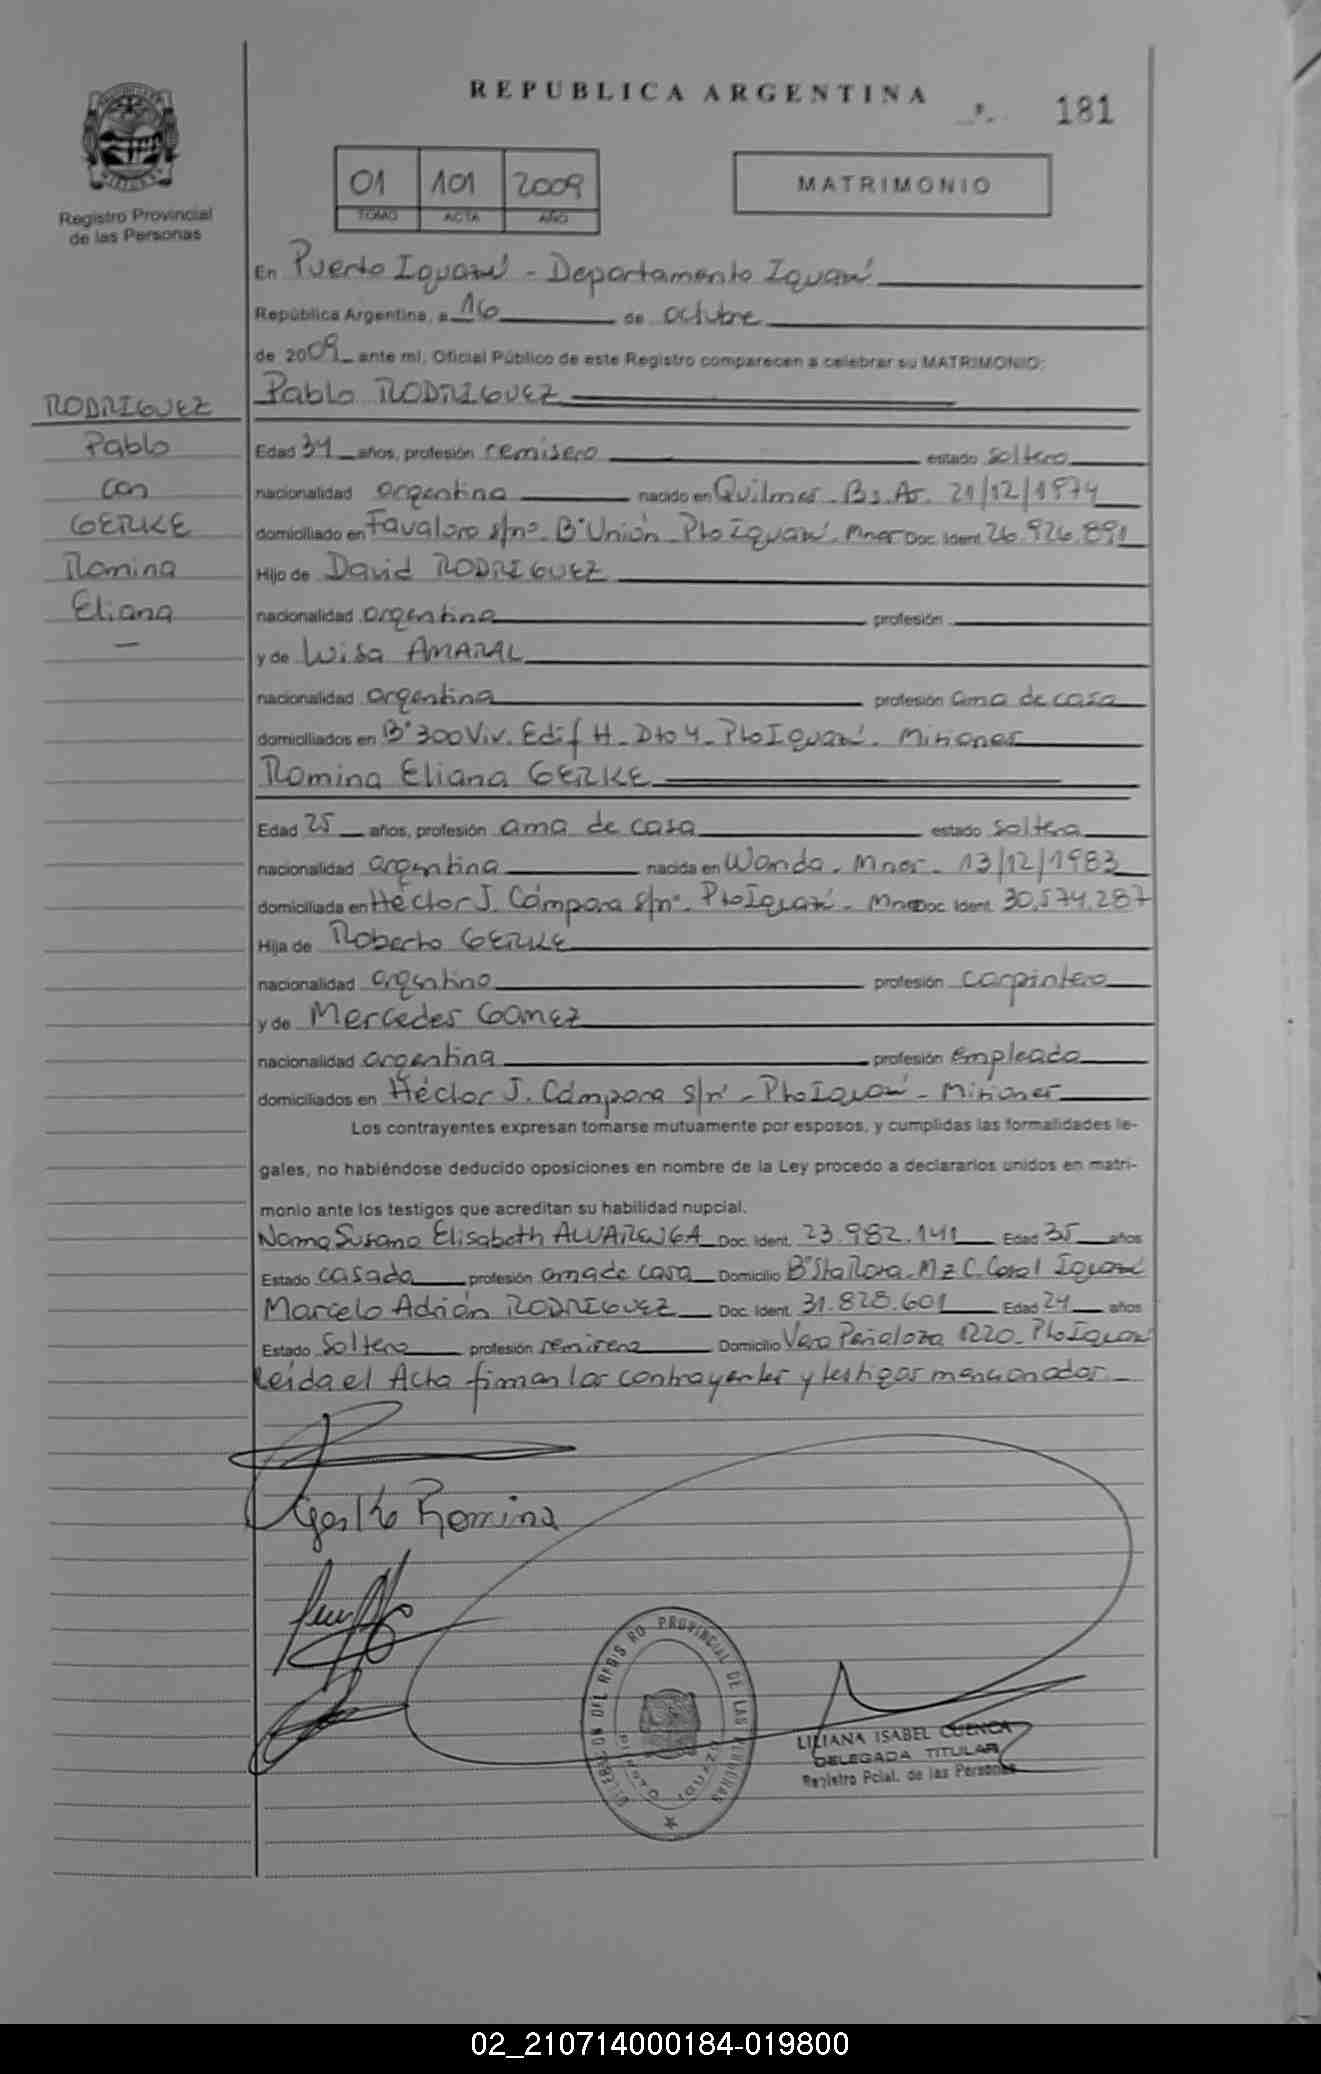 REPUBLICA ARGENTINA
181
01 101 2009
TOMO ACTA AÑO
MATRIMONIO
Registro Provincial
de las Personas
RODRIGUEZ
Pablo
con
GERKE
Romina
Eliana
—
En Puerto Iguazú - Departamento Iguazú
República Argentina, a 16 de octubre
de 2009 ante mí, Oficial Público de este Registro comparecen a celebrar su MATRIMONIO:
Pablo RODRIGUEZ
Edad 34 años, profesión remisero estado soltero
nacionalidad argentina nacido en Quilmes - Bs. As. 21/12/1974
domiciliado en Favaloro s/nº - Bº Unión - Pto Iguazú - Mnes Doc. Ident. 26.926.891
Hijo de David RODRIGUEZ
nacionalidad argentina profesión
y de Luisa AMARAL
nacionalidad argentina profesión ama de casa
domiciliados en Bº 300 Viv. Edif H - Dto 4 - Pto Iguazú - Misiones
Romina Eliana GERKE
Edad 25 años, profesión ama de casa estado soltera
nacionalidad argentina nacida en Wanda - Mnes - 13/12/1983
domiciliada en Héctor J. Cámpora s/nº - Pto Iguazú - Mnes Doc. Ident. 30.574.287
Hija de Roberto GERKE
nacionalidad argentino profesión carpintero
y de Mercedes GOMEZ
nacionalidad argentina profesión Empleada
domiciliados en Héctor J. Cámpora s/nº - Pto Iguazú - Misiones
Los contrayentes expresan tomarse mutuamente por esposos, y cumplidas las formalidades le-
gales, no habiéndose deducido oposiciones en nombre de la Ley procedo a declararlos unidos en matri-
monio ante los testigos que acreditan su habilidad nupcial.
Norma Susana Elisabeth ALVARENGA Doc. Ident. 23.982.141 Edad 35 años
Estado casada profesión ama de casa Domicilio Bº Sta Rosa - Mz C. Iguazú
Marcelo Adrián RODRIGUEZ Doc. Ident. 31.828.601 Edad 24 años
Estado Soltero profesión remisero Domicilio Vera Peñaloza 1220 - Pto Iguazú
Leída el Acta firman los contrayentes y testigos mencionados. -
Gerke Romina
DELEGACION DEL REGISTRO PROVINCIAL DE LAS PERSONAS
LILIANA ISABEL CUENCA
DELEGADA TITULAR
Registro Pcial. de las Personas
02_210714000184-019800